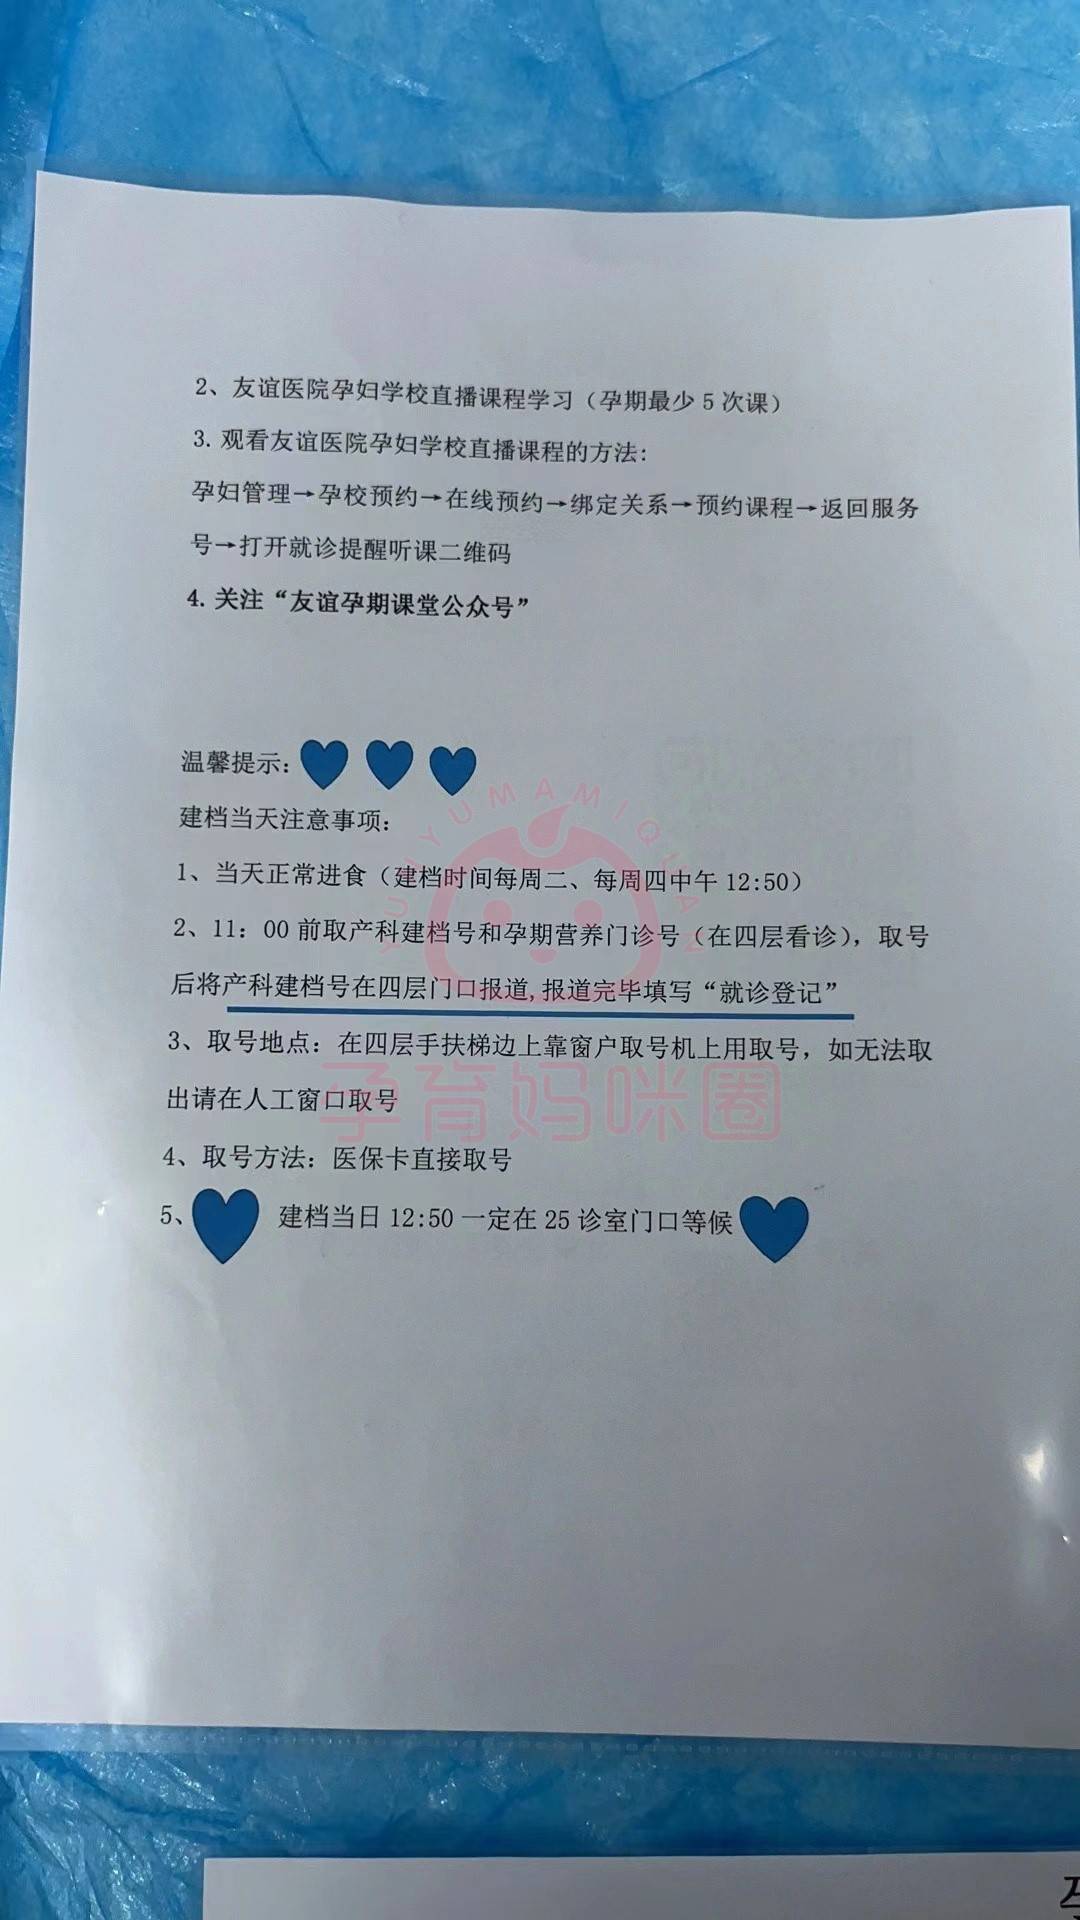 2、友谊医院孕妇学校直播课程学习（孕期最少 5 次课）
3. 观看友谊医院孕妇学校直播课程的方法:
孕妇管理→孕校预约→在线预约→绑定关系→预约课程→返回服务
号→打开就诊提醒听课二维码
4. 关注“友谊孕期课堂公众号”
温馨提示:
建档当天注意事项:
1、当天正常进食（建档时间每周二、每周四中午 12:50）
2、11：00 前取产科建档号和孕期营养门诊号（在四层看诊），取号
后将产科建档号在四层门口报道,报道完毕填写“就诊登记”
3、取号地点：在四层手扶梯边上靠窗户取号机上用取号，如无法取
出请在人工窗口取号
4、取号方法：医保卡直接取号
5、 建档当日 12:50 一定在 25 诊室门口等候
YUNYUMAMIQUAN
孕育妈咪圈